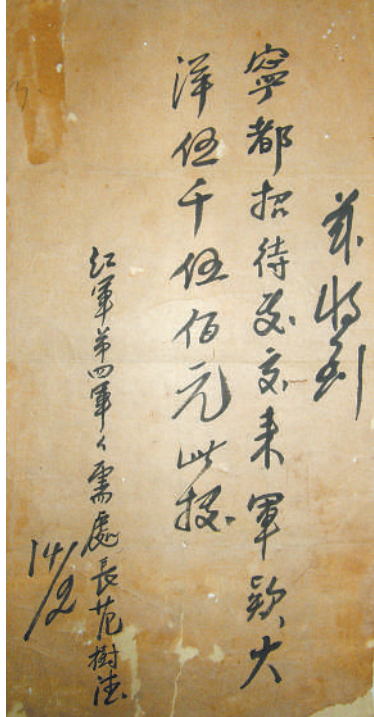 茲收到
寧都招待處交来軍欵大
洋伍千伍佰元此據
紅軍第四軍々需處長范樹德
14/2